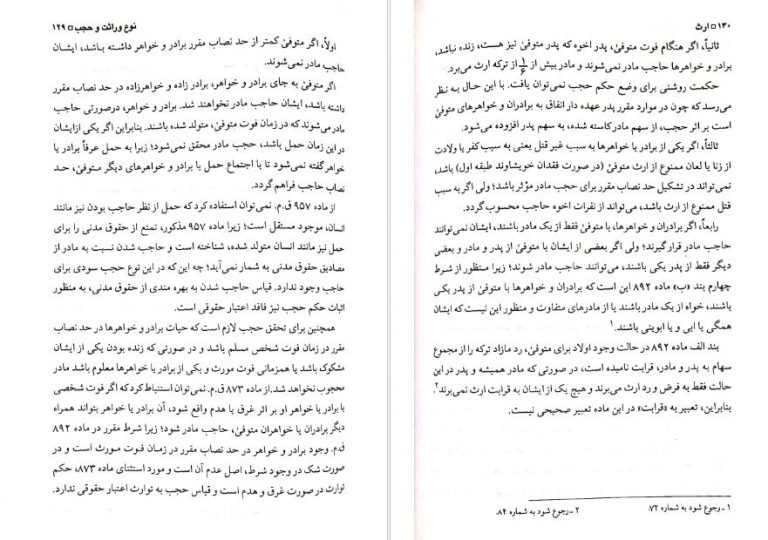 نوع وراثت و حجب □ ۱۲۹
اولاً، اگر متوفیٰ کمتر از حد نصاب مقرر برادر و خواهر داشته باشد، ایشان
حاجب مادر نمی‌شوند.
اگر متوفیٰ به جای برادر و خواهر، برادر زاده و خواهرزاده در حد نصاب مقرر
داشته باشد، ایشان حاجب مادر نخواهند شد. برادر و خواهر، درصورتی حاجب
مادر می‌شوند که در زمان فوت متوفیٰ، متولد شده باشند. بنابراین اگر یکی ازایشان
در این زمان حمل باشد، حجب مادر محقق نمی‌شود؛ زیرا به حمل عرفاً برادر یا
خواهرگفته نمی‌شود تا با اجتماع حمل با برادر و خواهرهای دیگر متوفیٰ، حد
نصاب حاجب فراهم گردد.
از ماده ۹۵۷ ق.م. نمی‌توان استفاده کرد که حمل از نظر حاجب بودن نیز مانند
انسان، موجود مستقل است؛ زیرا ماده ۹۵۷ مذکور، تمتع از حقوق مدنی را برای
حمل نیز مانند انسان متولد شده، شناخته است و حاجب شدن نسبت به مادر از
مصادیق حقوق مدنی به شمار نمی‌آید؛ چه این که در این نوع حجب سودی برای
حاجب وجود ندارد. قیاس حاجب شدن به بهره مندی از حقوق مدنی، به منظور
اثبات حکم حجب نیز فاقد اعتبار حقوقی است.
همچنین برای تحقق حجب لازم است که حیات برادر و خواهرها در حد نصاب
مقرر در زمان فوت شخص مسلم باشد و در صورتی که زنده بودن یکی از ایشان
مشکوک باشد یا همزمانی فوت مورث و یکی از برادر یا خواهرها معلوم باشد مادر
محجوب نخواهد شد. از ماده ۸۷۳ ق.م. نمی‌توان استنباط کرد که اگر فوت شخصی
با برادر یا خواهر او بر اثر غرق یا هدم واقع شود، آن برادر یا خواهر بتواند همراه
دیگر برادران یا خواهران متوفیٰ، حاجب مادر شود؛ زیرا شرط مقرر در ماده ۸۹۲
ق.م. وجود برادر و خواهر در حد نصاب مقرر در زمان فوت مورث است و در
صورت شک در وجود شرط، اصل عدم آن است و مورد استثنای ماده ۸۷۳، حکم
توارث در صورت غرق و هدم است و قیاس حجب به توارث اعتبار حقوقی ندارد.
۱۳۰ □ ارث
ثانیاً، اگر هنگام فوت متوفیٰ، پدر اخوه که پدر متوفیٰ نیز هست، زنده نباشد،
برادر و خواهرها حاجب مادر نمی‌شوند و مادر بیش از ۱/۶ از ترکه ارث می‌برد.
حکمت روشنی برای وضع حکم حجب نمی‌توان یافت. با این حال به نظر
می‌رسد که چون در موارد مقرر پدر عهده دار انفاق به برادران و خواهرهای متوفیٰ
است بر اثر حجب، از سهم مادرکاسته شده، به سهم پدر افزوده می‌شود.
ثالثاً، اگر یکی از برادر یا خواهرها به سبب غیر قتل یعنی به سبب کفر یا ولادت
از زنا یا لعان ممنوع از ارث متوفیٰ (در صورت فقدان خویشاوند طبقه اول) باشد،
نمی‌تواند در تشکیل حد نصاب مقرر برای حجب مادر مؤثر باشد؛ ولی اگر به سبب
قتل ممنوع از ارث باشد، می‌تواند از نفرات اخوه حاجب محسوب گردد.
رابعاً، اگر برادران و خواهرها، با متوفیٰ فقط از یک مادر باشند، ایشان نمی‌توانند
حاجب مادر قرارگیرند؛ ولی اگر بعضی از ایشان با متوفیٰ از پدر و مادر و بعضی
دیگر فقط از پدر یکی باشند، می‌توانند حاجب مادر شوند؛ زیرا منظور از شرط
چهارم بند «ب» ماده ۸۹۲ این است که برادران و خواهرها با متوفیٰ از پدر یکی
باشند، خواه از یک مادر باشند یا از مادرهای متفاوت و منظور این نیست که ایشان
همگی یا ابی و یا ابوینی باشند.۱
بند الف ماده ۸۹۲ در حالت وجود اولاد برای متوفیٰ، رد مازاد ترکه را از مجموع
سهام به پدر و مادر، قرابت نامیده است، در صورتی که مادر همیشه و پدر در این
حالت فقط به فرض و رد ارث می‌برند و هیچ یک از ایشان به قرابت ارث نمی‌برند.۲
بنابراین، تعبیر به «قرابت» در این ماده تعبیر صحیحی نیست.
۱ ـ رجوع شود به شماره ۷۲. ۲ ـ رجوع شود به شماره ۸۴.